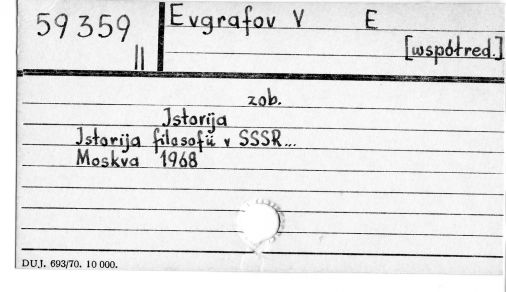 59359
II
Evgrafov V E
[współred.]
zob.
Istorija
Istorija filosofii v SSSR...
Moskva 1968
DUJ. 693/70. 10 000.